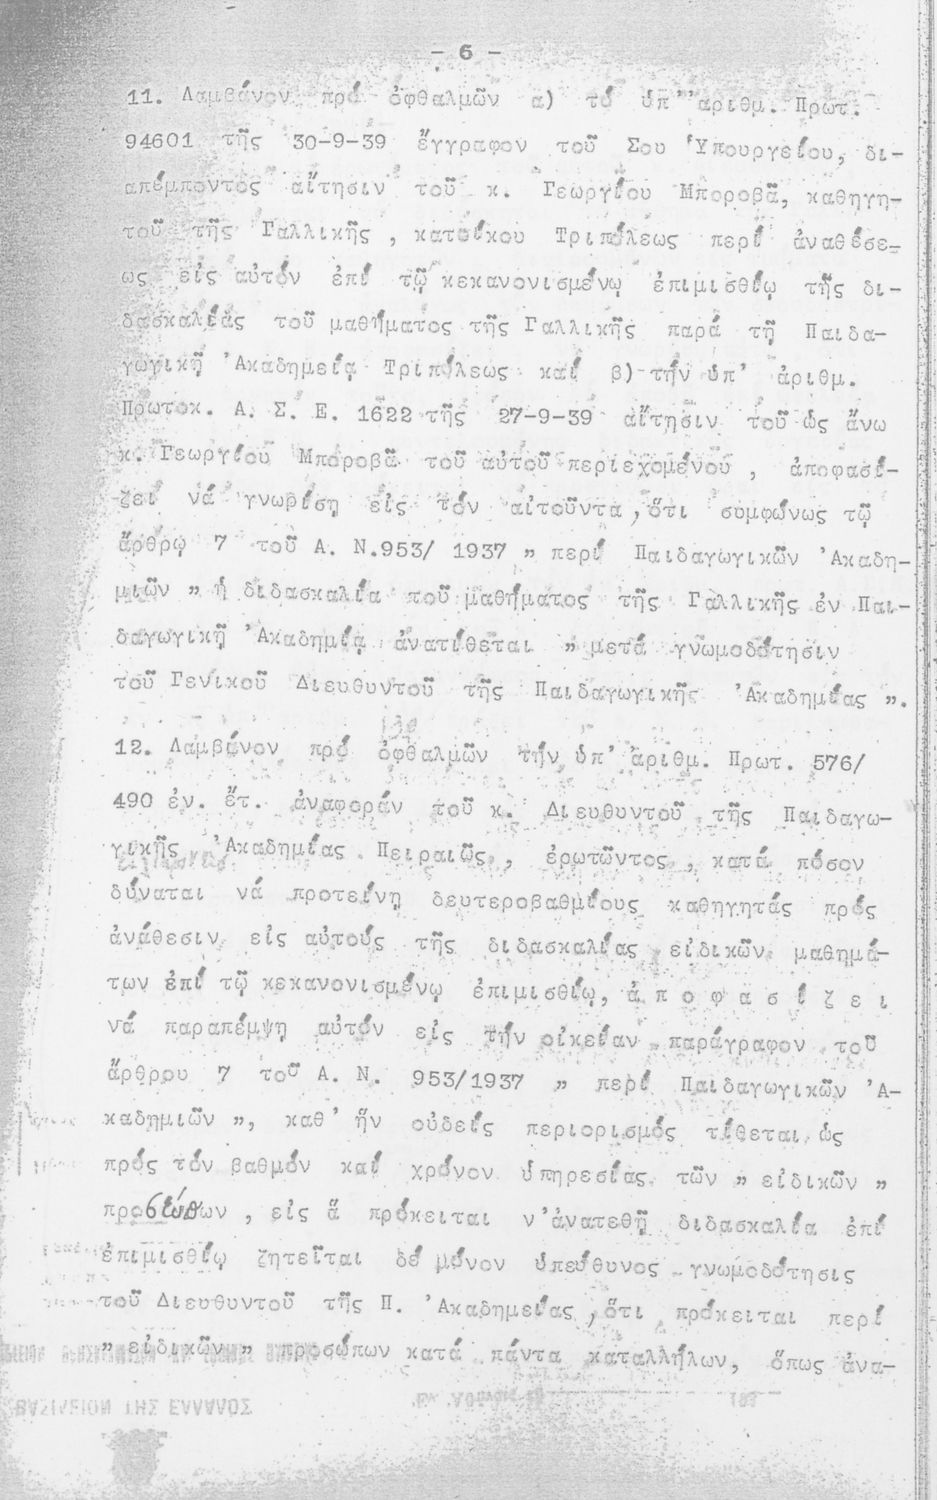 - 6 -
11. Λαμβάνον πρό ὀφθαλμῶν α) τό ὑπ' ἀριθμ. Πρωτ.
94601 τῆς 30-9-39 ἔγγραφον τοῦ Σου Ὑπουργείου, δι-
απέμποντος αἴτησιν τοῦ κ. Γεωργίου Μποροβᾶ, καθηγη-
τοῦ τῆς Γαλλικῆς , κατοίκου Τριπόλεως περί ἀναθέσε-
ως εἰς αὐτόν ἐπί τῷ κεκανονισμένῳ ἐπιμισθίῳ τῆς δι-
δασκαλίας τοῦ μαθήματος τῆς Γαλλικῆς παρά τῇ Παιδα-
γωγικῇ Ἀκαδημείᾳ Τριπόλεως καί β) τήν ὑπ' ἀριθμ.
Πρωτοκ. Α. Σ. Ε. 1622 τῆς 27-9-39 αἴτησιν τοῦ ὡς ἄνω
κ. Γεωργίου Μποροβᾶ τοῦ αὐτοῦ περιεχομένου , ἀποφασί-
ζει νά γνωρίσῃ εἰς τόν αἰτοῦντα, ὅτι συμφώνως τῷ
ἄρθρῳ 7 τοῦ Α. Ν.953/ 1937 " περί Παιδαγωγικῶν Ἀκαδη-
μιῶν " ἡ διδασκαλία τοῦ μαθήματος τῆς Γαλλικῆς ἐν Παι-
δαγωγικῇ Ἀκαδημίᾳ ἀνατίθεται " μετά γνωμοδότησιν
τοῦ Γενικοῦ Διευθυντοῦ τῆς Παιδαγωγικῆς Ἀκαδημίας ".
12. Λαμβάνον πρό ὀφθαλμῶν τήν ὑπ' ἀριθμ. Πρωτ. 576/
490 ἐν. ἔτ. ἀναφοράν τοῦ κ. Διευθυντοῦ τῆς Παιδαγω-
γικῆς Ἀκαδημίας Πειραιῶς , ἐρωτῶντος , κατά πόσον
δύναται νά προτείνῃ δευτεροβαθμίους καθηγητάς πρός
ἀνάθεσιν εἰς αὐτούς τῆς διδασκαλίας εἰδικῶν μαθημά-
των ἐπί τῷ κεκανονισμένῳ ἐπιμισθίῳ, ἀ π ο φ α σ ί ζ ε ι
νά παραπέμψῃ αὐτόν εἰς τήν οἰκείαν παράγραφον τοῦ
ἄρθρου 7 τοῦ Α. Ν. 953/1937 " περί Παιδαγωγικῶν Ἀ-
καδημιῶν ", καθ' ἥν οὐδείς περιορισμός τίθεται ὡς
πρός τόν βαθμόν καί χρόνον ὑπηρεσίας τῶν " εἰδικῶν "
προσώπων , εἰς ἅ πρόκειται ν'ἀνατεθῇ διδασκαλία ἐπί
ἐπιμισθίῳ ζητεῖται δέ μόνον ὑπεύθυνος γνωμοδότησις
τοῦ Διευθυντοῦ τῆς Π. Ἀκαδημείας , ὅτι πρόκειται περί
" εἰδικῶν " προσώπων κατά πάντα καταλλήλων, ὅπως ἀνα-